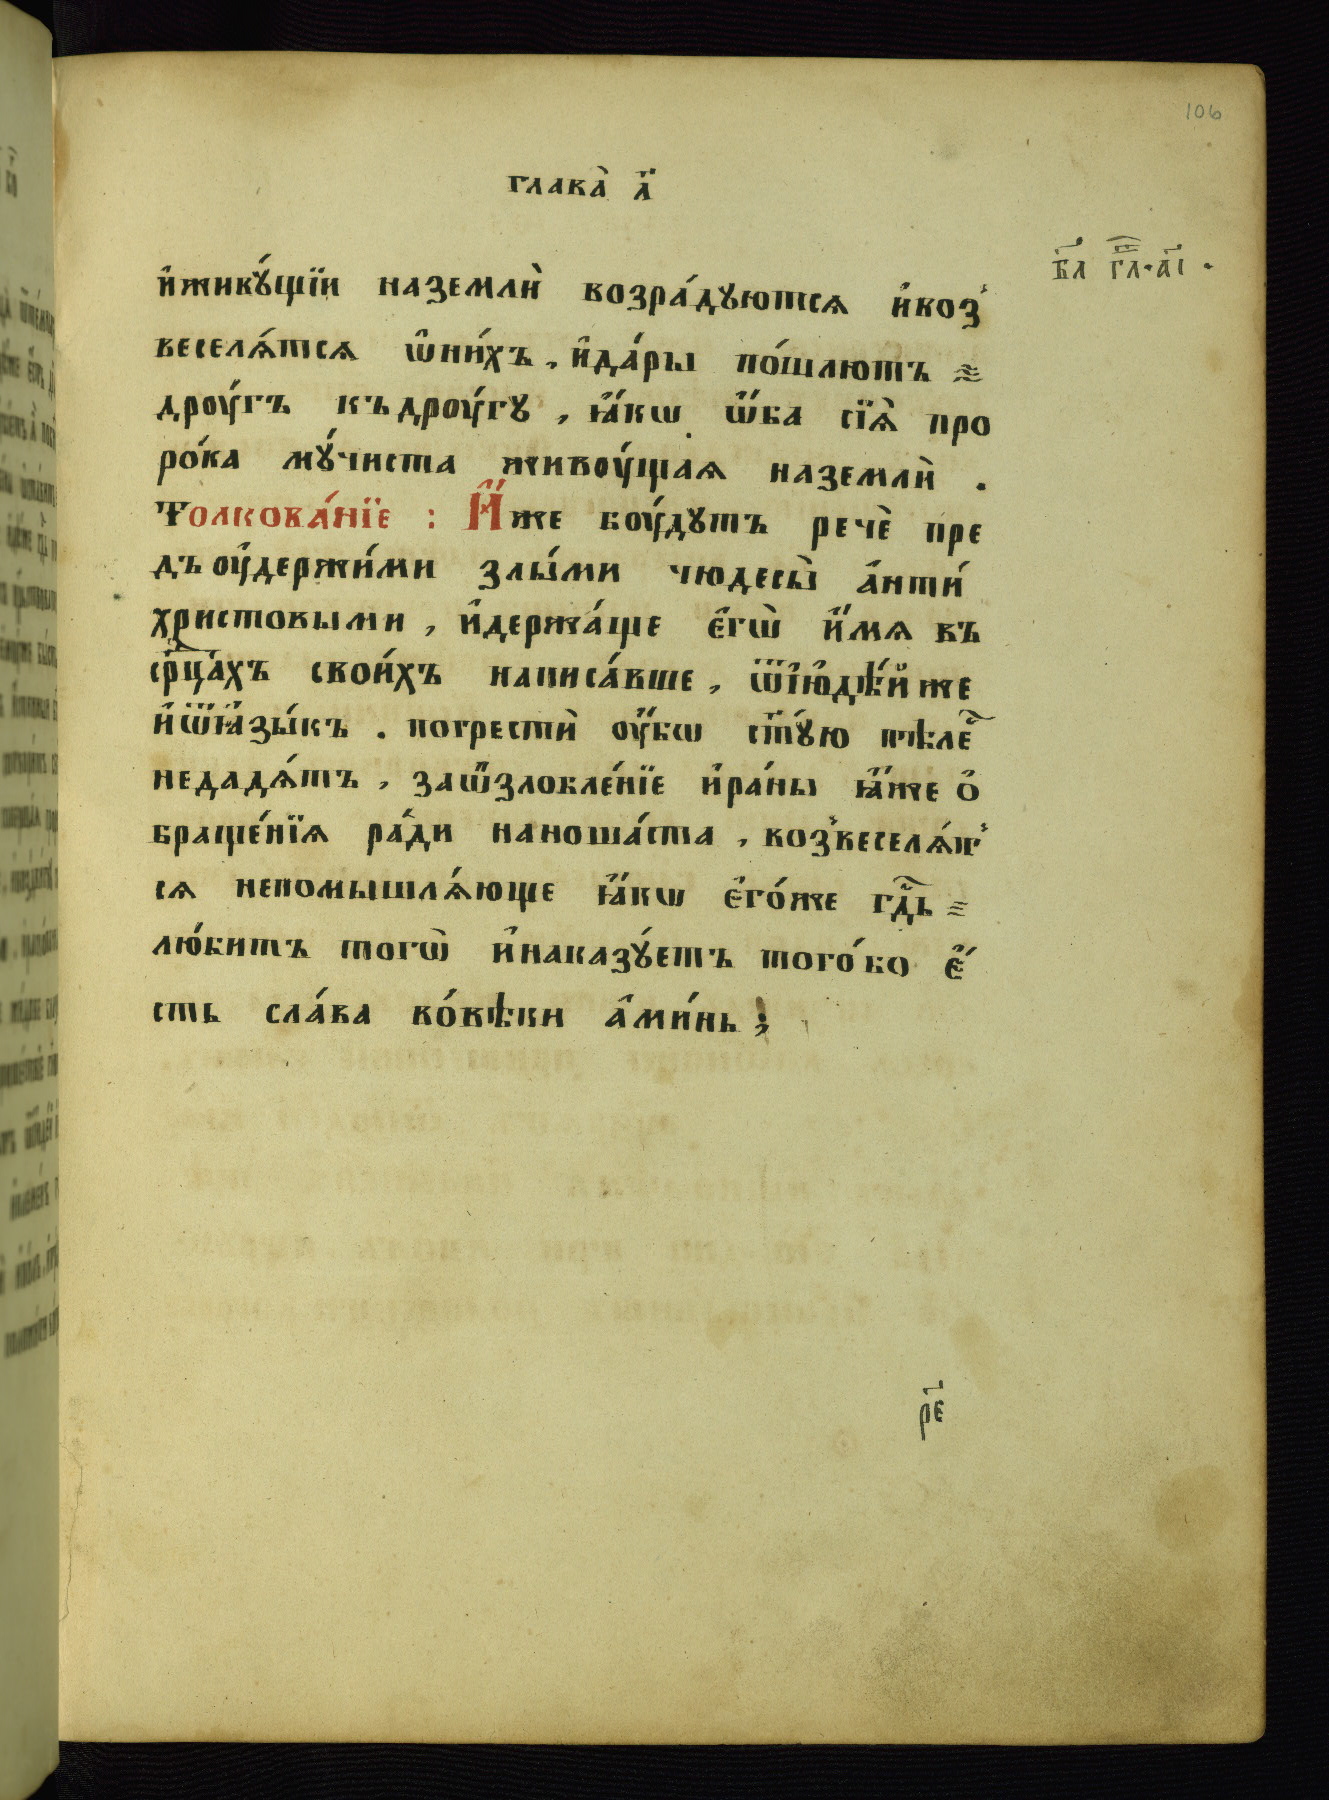 106
глава̀ л҃
бл҃ гл҃·а҃і ·
и҆живꙋ́щїи наземлѝ возра́дꙋютсѧ и҆воз̾
веселѧ́тсѧ ѡ҆ни́хъ , и҆да́ры по́шлютъ
дроу́гъ къдроу́гꙋ , ꙗ҆́кѡ ѡ҆́ба сїѧ̀ про
ро́ка мꙋ́чиста живоу́щаѧ наземлѝ .
Толкова́нїе : И҆́же боу́дꙋтъ речѐ пре
дъоу҆держи́ми злы́ми чюдесы̀ а҆нти́
христовыми , и҆держа́ще є҆гѡ̀ и҆́мѧ въ
ср҃ца́хъ свои́хъ написа́вше , ѿі҆ю҆дѣ́йже
и҆ѿꙗ҆зы́къ . погрестѝ оу҆́бѡ ст҃ꙋ́ю тѣлє҃
недадѧ́тъ , заѡ҆злобле́нїе и҆ра́ны ꙗ҆́же ѻ҆
браще́нїѧ ра́ди наноша́ста , воз̾веселѧ́т̾
сѧ непомышлѧ́юще ꙗ҆́кѡ є҆го́же гд҃ь
лю́битъ тогѡ̀ и҆наказꙋ́етъ того́бо є҆́
сть сла́ва во́вѣки а҆ми́нь ;
р҃є